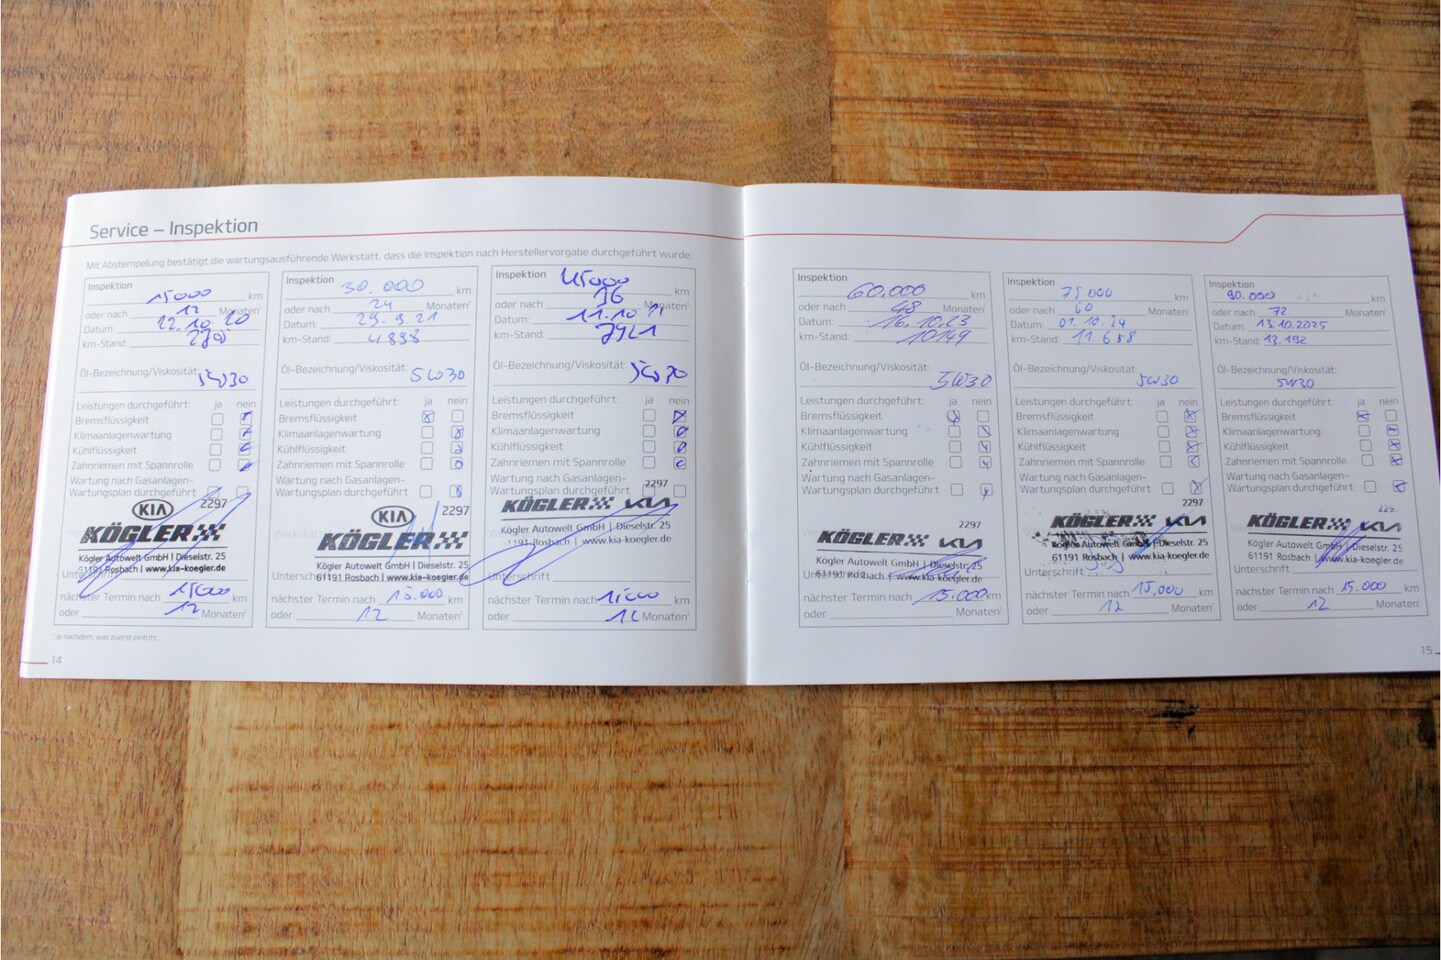 Service – Inspektion
Mit Abstempelung bestätigt die wartungsausführende Werkstatt, dass die Inspektion nach Herstellervorgabe durchgeführt wurde.
Inspektion
15000 km
oder nach 12 Monaten¹
Datum: 22.10.20
km-Stand:
Öl-Bezeichnung/Viskosität:
5W30
Leistungen durchgeführt: ja nein
Bremsflüssigkeit
Klimaanlagenwartung
Kühlflüssigkeit
Zahnriemen mit Spannrolle
Wartung nach Gasanlagen-
Wartungsplan durchgeführt
KIA 2297
KÖGLER
Kögler Autowelt GmbH | Dieselstr. 25
61191 Rosbach | www.kia-koegler.de
nächster Termin nach 15000 km
oder 12 Monaten¹
Inspektion
30.000 km
oder nach 24 Monaten¹
Datum: 29.9.21
km-Stand: 4838
Öl-Bezeichnung/Viskosität:
5W30
Leistungen durchgeführt: ja nein
Bremsflüssigkeit
Klimaanlagenwartung
Kühlflüssigkeit
Zahnriemen mit Spannrolle
Wartung nach Gasanlagen-
Wartungsplan durchgeführt
KIA 2297
KÖGLER
Kögler Autowelt GmbH | Dieselstr. 25
61191 Rosbach | www.kia-koegler.de
Unterschrift
nächster Termin nach 15.000 km
oder 12 Monaten¹
Inspektion 45000
km
oder nach 36 Monaten¹
Datum: 11.10
km-Stand: 7921
Öl-Bezeichnung/Viskosität:
5W30
Leistungen durchgeführt: ja nein
Bremsflüssigkeit
Klimaanlagenwartung
Kühlflüssigkeit
Zahnriemen mit Spannrolle
Wartung nach Gasanlagen-
Wartungsplan durchgeführt
2297
KÖGLER KIA
Kögler Autowelt GmbH | Dieselstr. 25
61191 Rosbach | www.kia-koegler.de
Unterschrift
nächster Termin nach 15000 km
oder 12 Monaten¹
¹ Je nachdem, was zuerst eintritt.
14
Inspektion
60.000 km
oder nach 48 Monaten¹
Datum: 16.10.23
km-Stand: 10149
Öl-Bezeichnung/Viskosität:
5W30
Leistungen durchgeführt: ja nein
Bremsflüssigkeit
Klimaanlagenwartung
Kühlflüssigkeit
Zahnriemen mit Spannrolle
Wartung nach Gasanlagen-
Wartungsplan durchgeführt
2297
KÖGLER KIA
Kögler Autowelt GmbH | Dieselstr. 25
61191 Rosbach | www.kia-koegler.de
nächster Termin nach 15.000 km
oder Monaten¹
Inspektion
75000 km
oder nach 60 Monaten¹
Datum: 01.10.24
km-Stand: 11.658
Öl-Bezeichnung/Viskosität:
5W30
Leistungen durchgeführt: ja nein
Bremsflüssigkeit
Klimaanlagenwartung
Kühlflüssigkeit
Zahnriemen mit Spannrolle
Wartung nach Gasanlagen-
Wartungsplan durchgeführt
2297
KÖGLER KIA
Kögler Autowelt GmbH | Dieselstr. 25
61191 Rosbach | www.kia-koegler.de
Unterschrift
nächster Termin nach 15.000 km
oder 12 Monaten¹
Inspektion
90.000 km
oder nach 72 Monaten¹
Datum: 13.10.2025
km-Stand: 13.192
Öl-Bezeichnung/Viskosität:
5W30
Leistungen durchgeführt: ja nein
Bremsflüssigkeit
Klimaanlagenwartung
Kühlflüssigkeit
Zahnriemen mit Spannrolle
Wartung nach Gasanlagen-
Wartungsplan durchgeführt
KÖGLER KIA
Kögler Autowelt GmbH | Dieselstr. 25
61191 Rosbach | www.kia-koegler.de
Unterschrift
nächster Termin nach 15.000 km
oder 12 Monaten¹
15